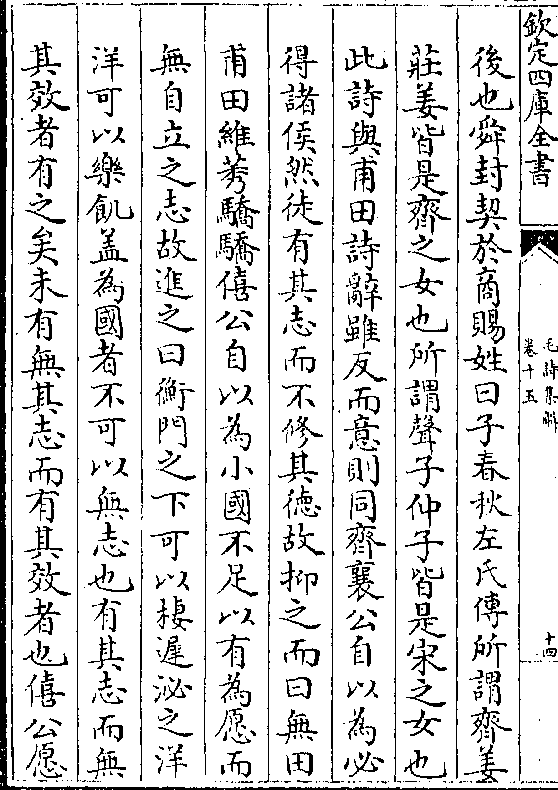 欽定四庫全書
毛詩集解
卷十五
十四
後也舜封契於商賜姓曰子春秋左氏傳所謂齊姜
莊姜皆是齊之女也所謂聲子仲子皆是宋之女也
此詩與甫田詩辭雖反而意則同齊襄公自以為必
得諸侯然徒有其志而不修其德故抑之而曰無田
甫田維莠驕驕僖公自以為小國不足以有為愿而
無自立之志故進之曰衡門之下可以棲遲泌之洋
洋可以樂飢盖為國者不可以無志也有其志而無
其效者有之矣未有無其志而有其效者也僖公愿